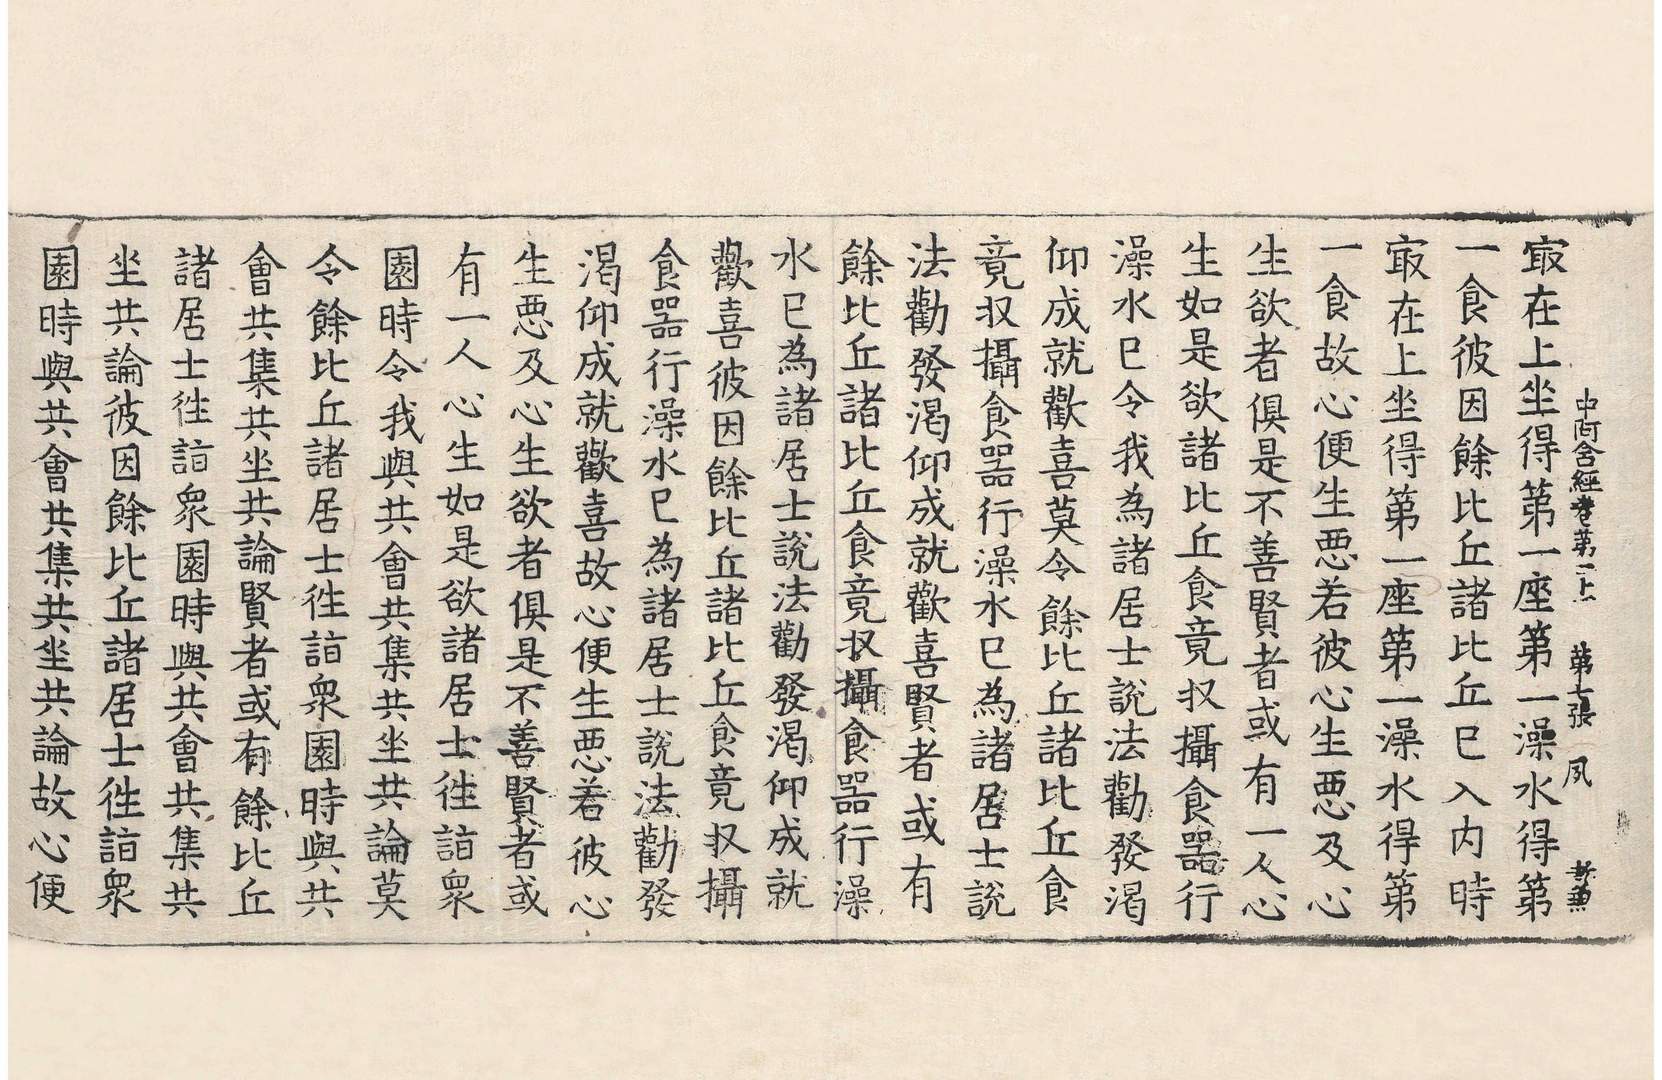 中阿含經卷第二上 第七張 夙
冣在上坐得第一座第一澡水得第
一食彼因餘比丘諸比丘已入内時
冣在上坐得第一座第一澡水得第
一食故心便生悪若彼心生悪及心
生欲者俱是不善賢者或有一人心
生如是欲諸比丘食竟収攝食器行
澡水已令我為諸居士說法勸發渴
仰成就歡喜莫令餘比丘諸比丘食
竟収攝食器行澡水已為諸居士說
法勸發渴仰成就歡喜賢者或有
餘比丘諸比丘食竟収攝食器行澡
水已為諸居士說法勸發渴仰成就
歡喜彼因餘比丘諸比丘食竟収攝
食器行澡水已為諸居士說法勸發
渴仰成就歡喜故心便生悪若彼心
生悪及心生欲者俱是不善賢者或
有一人心生如是欲諸居士徃詣衆
園時令我與共會共集共坐共論莫
令餘比丘諸居士徃詣衆園時與共
會共集共坐共論賢者或有餘比丘
諸居士徃詣衆園時與共會共集共
坐共論彼因餘比丘諸居士徃詣衆
園時與共會共集共坐共論故心便